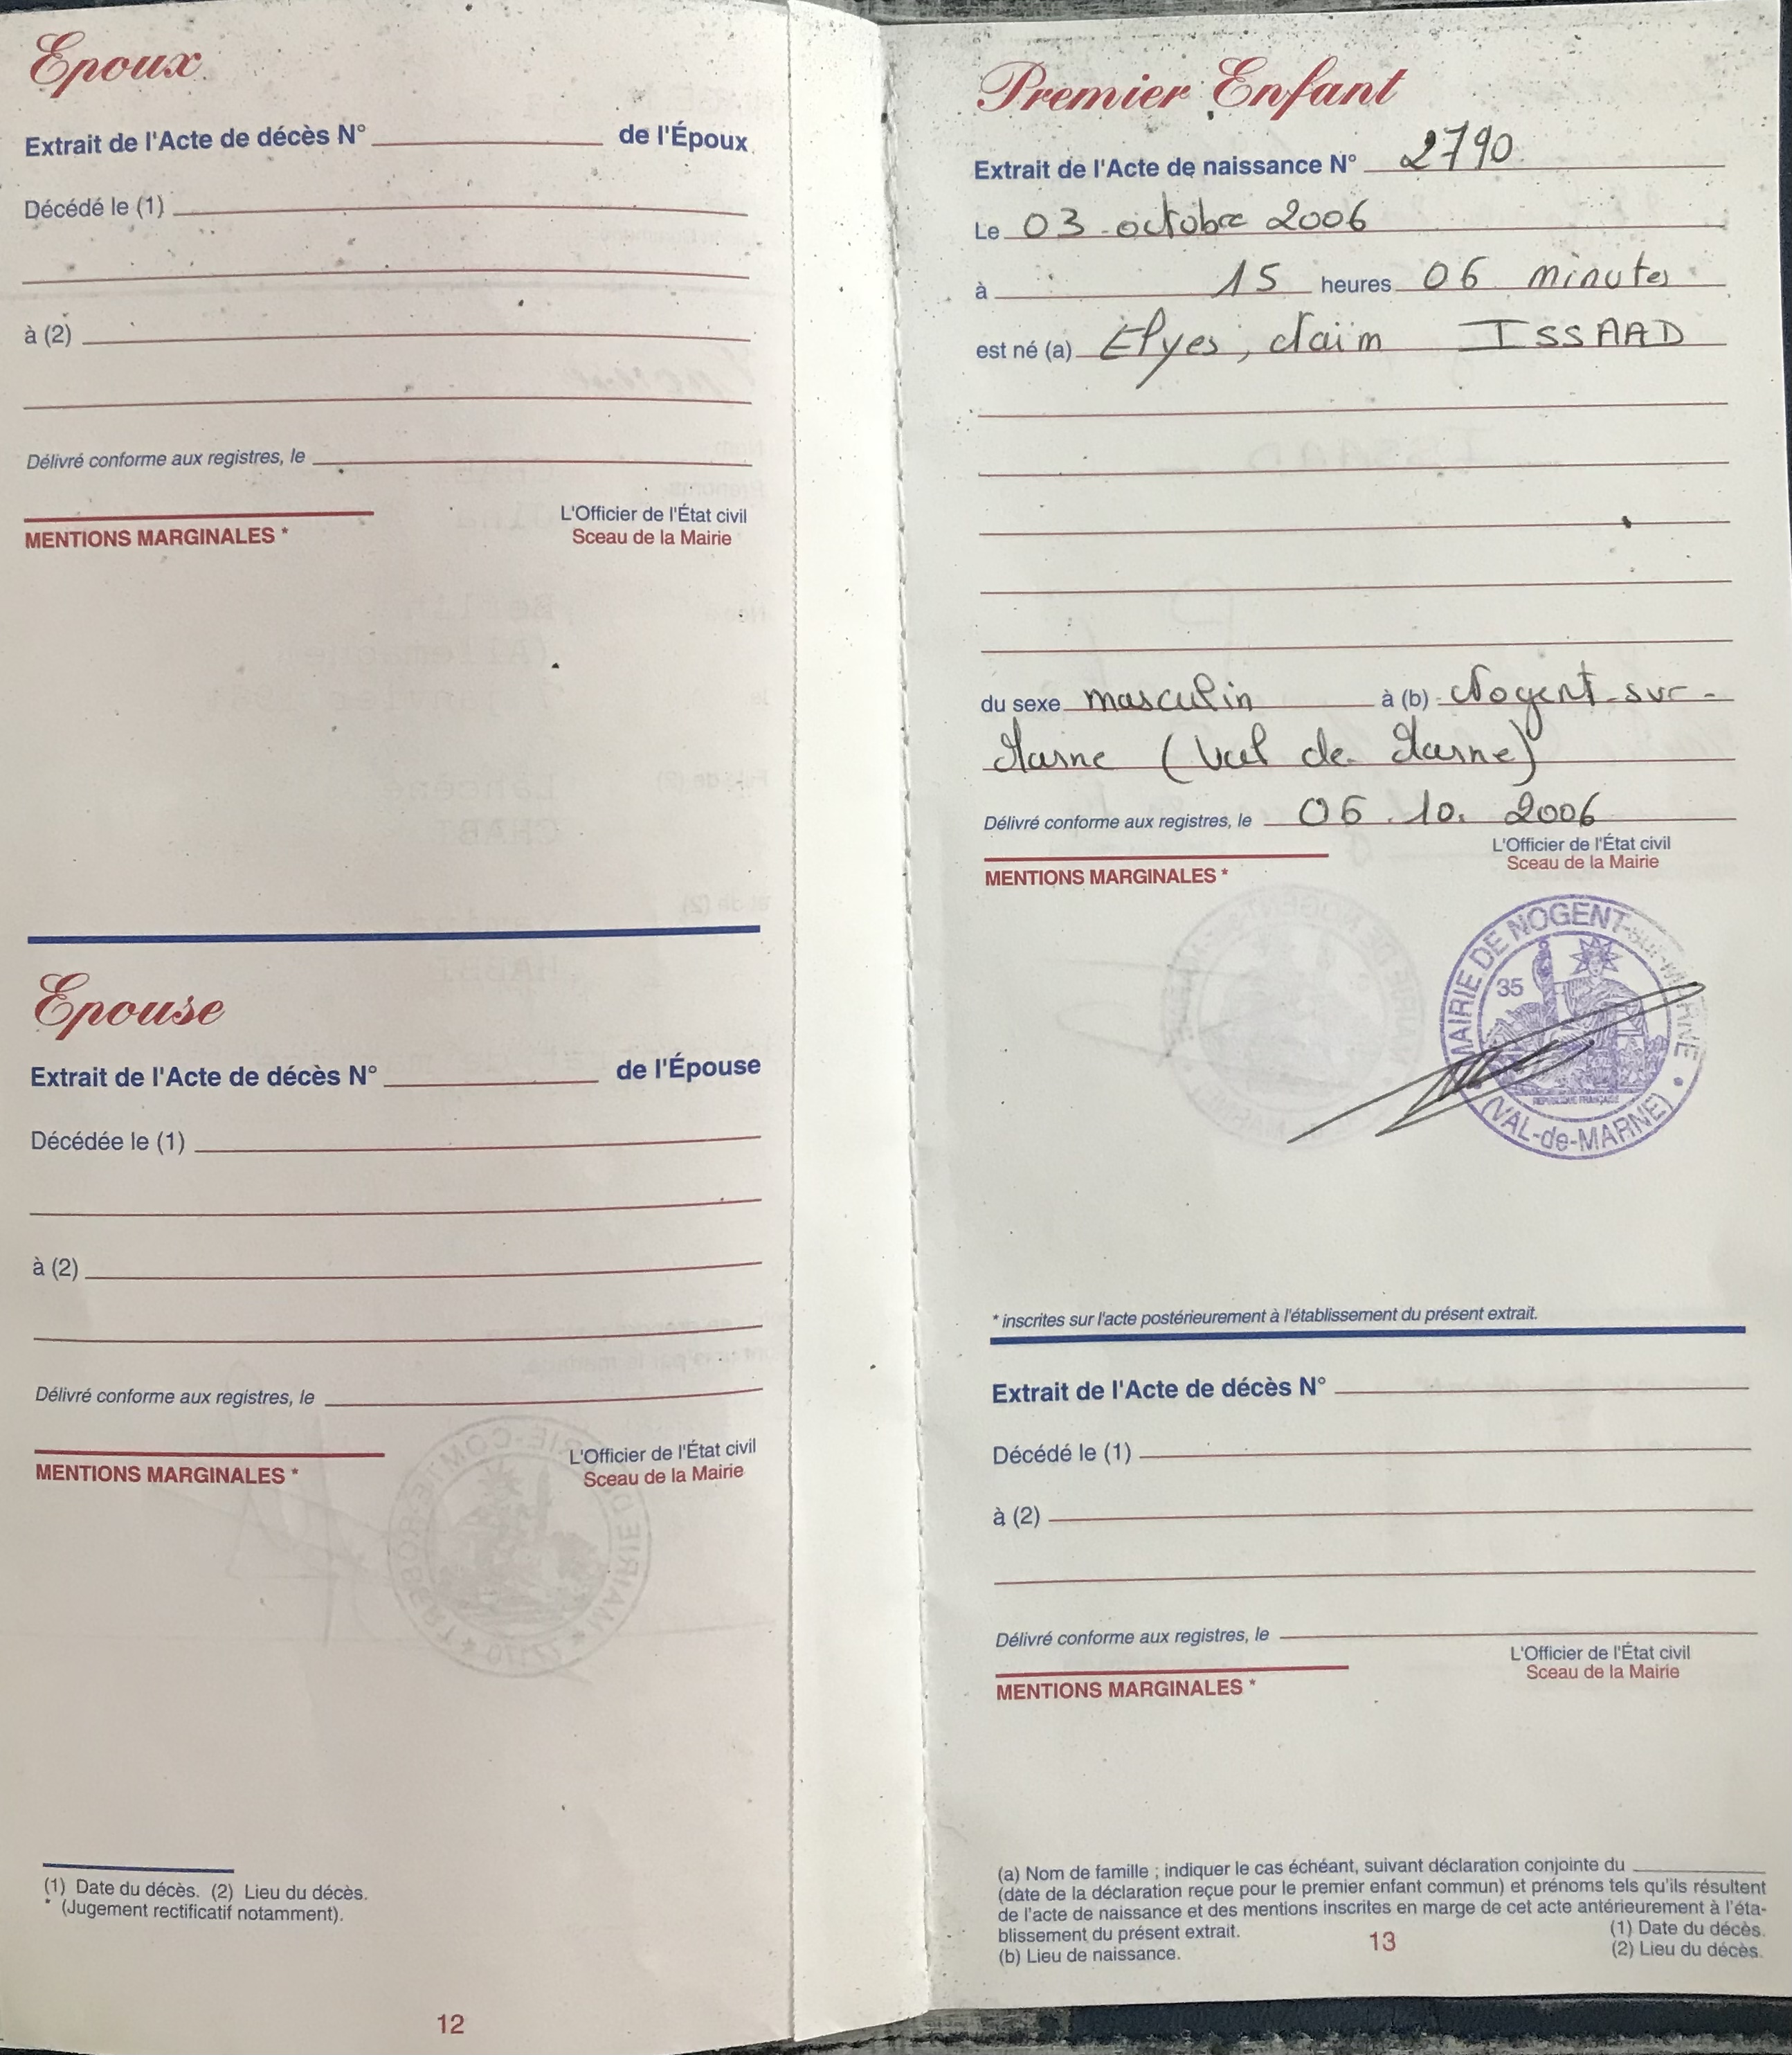 Epoux
Extrait de l'Acte de décès N° de l'Époux
Décédé le (1)
à (2)
Délivré conforme aux registres, le
MENTIONS MARGINALES *
L'Officier de l'État civil
Sceau de la Mairie
Epouse
Extrait de l'Acte de décès N° de l'Épouse
Décédée le (1)
à (2)
Délivré conforme aux registres, le
MENTIONS MARGINALES *
L'Officier de l'État civil
Sceau de la Mairie
(1) Date du décès. (2) Lieu du décès.
* (Jugement rectificatif notamment).
12
Premier Enfant
Extrait de l'Acte de naissance N° 2790
Le 03 octobre 2006
à 15 heures 06 minutes
est né (a) Elyes, Naim ISSAAD
du sexe masculin à (b) Nogent-sur-
Marne (Val de Marne)
Délivré conforme aux registres, le 06.10.2006
L'Officier de l'État civil
Sceau de la Mairie
MENTIONS MARGINALES *
MAIRIE DE NOGENT-sur-MARNE
35
REPUBLIQUE FRANÇAISE
(VAL-de-MARNE)
* inscrites sur l'acte postérieurement à l'établissement du présent extrait.
Extrait de l'Acte de décès N°
Décédé le (1)
à (2)
Délivré conforme aux registres, le
L'Officier de l'État civil
Sceau de la Mairie
MENTIONS MARGINALES *
(a) Nom de famille ; indiquer le cas échéant, suivant déclaration conjointe du
(date de la déclaration reçue pour le premier enfant commun) et prénoms tels qu'ils résultent
de l'acte de naissance et des mentions inscrites en marge de cet acte antérieurement à l'éta-
blissement du présent extrait.
(b) Lieu de naissance.
(1) Date du décès.
(2) Lieu du décès.
13